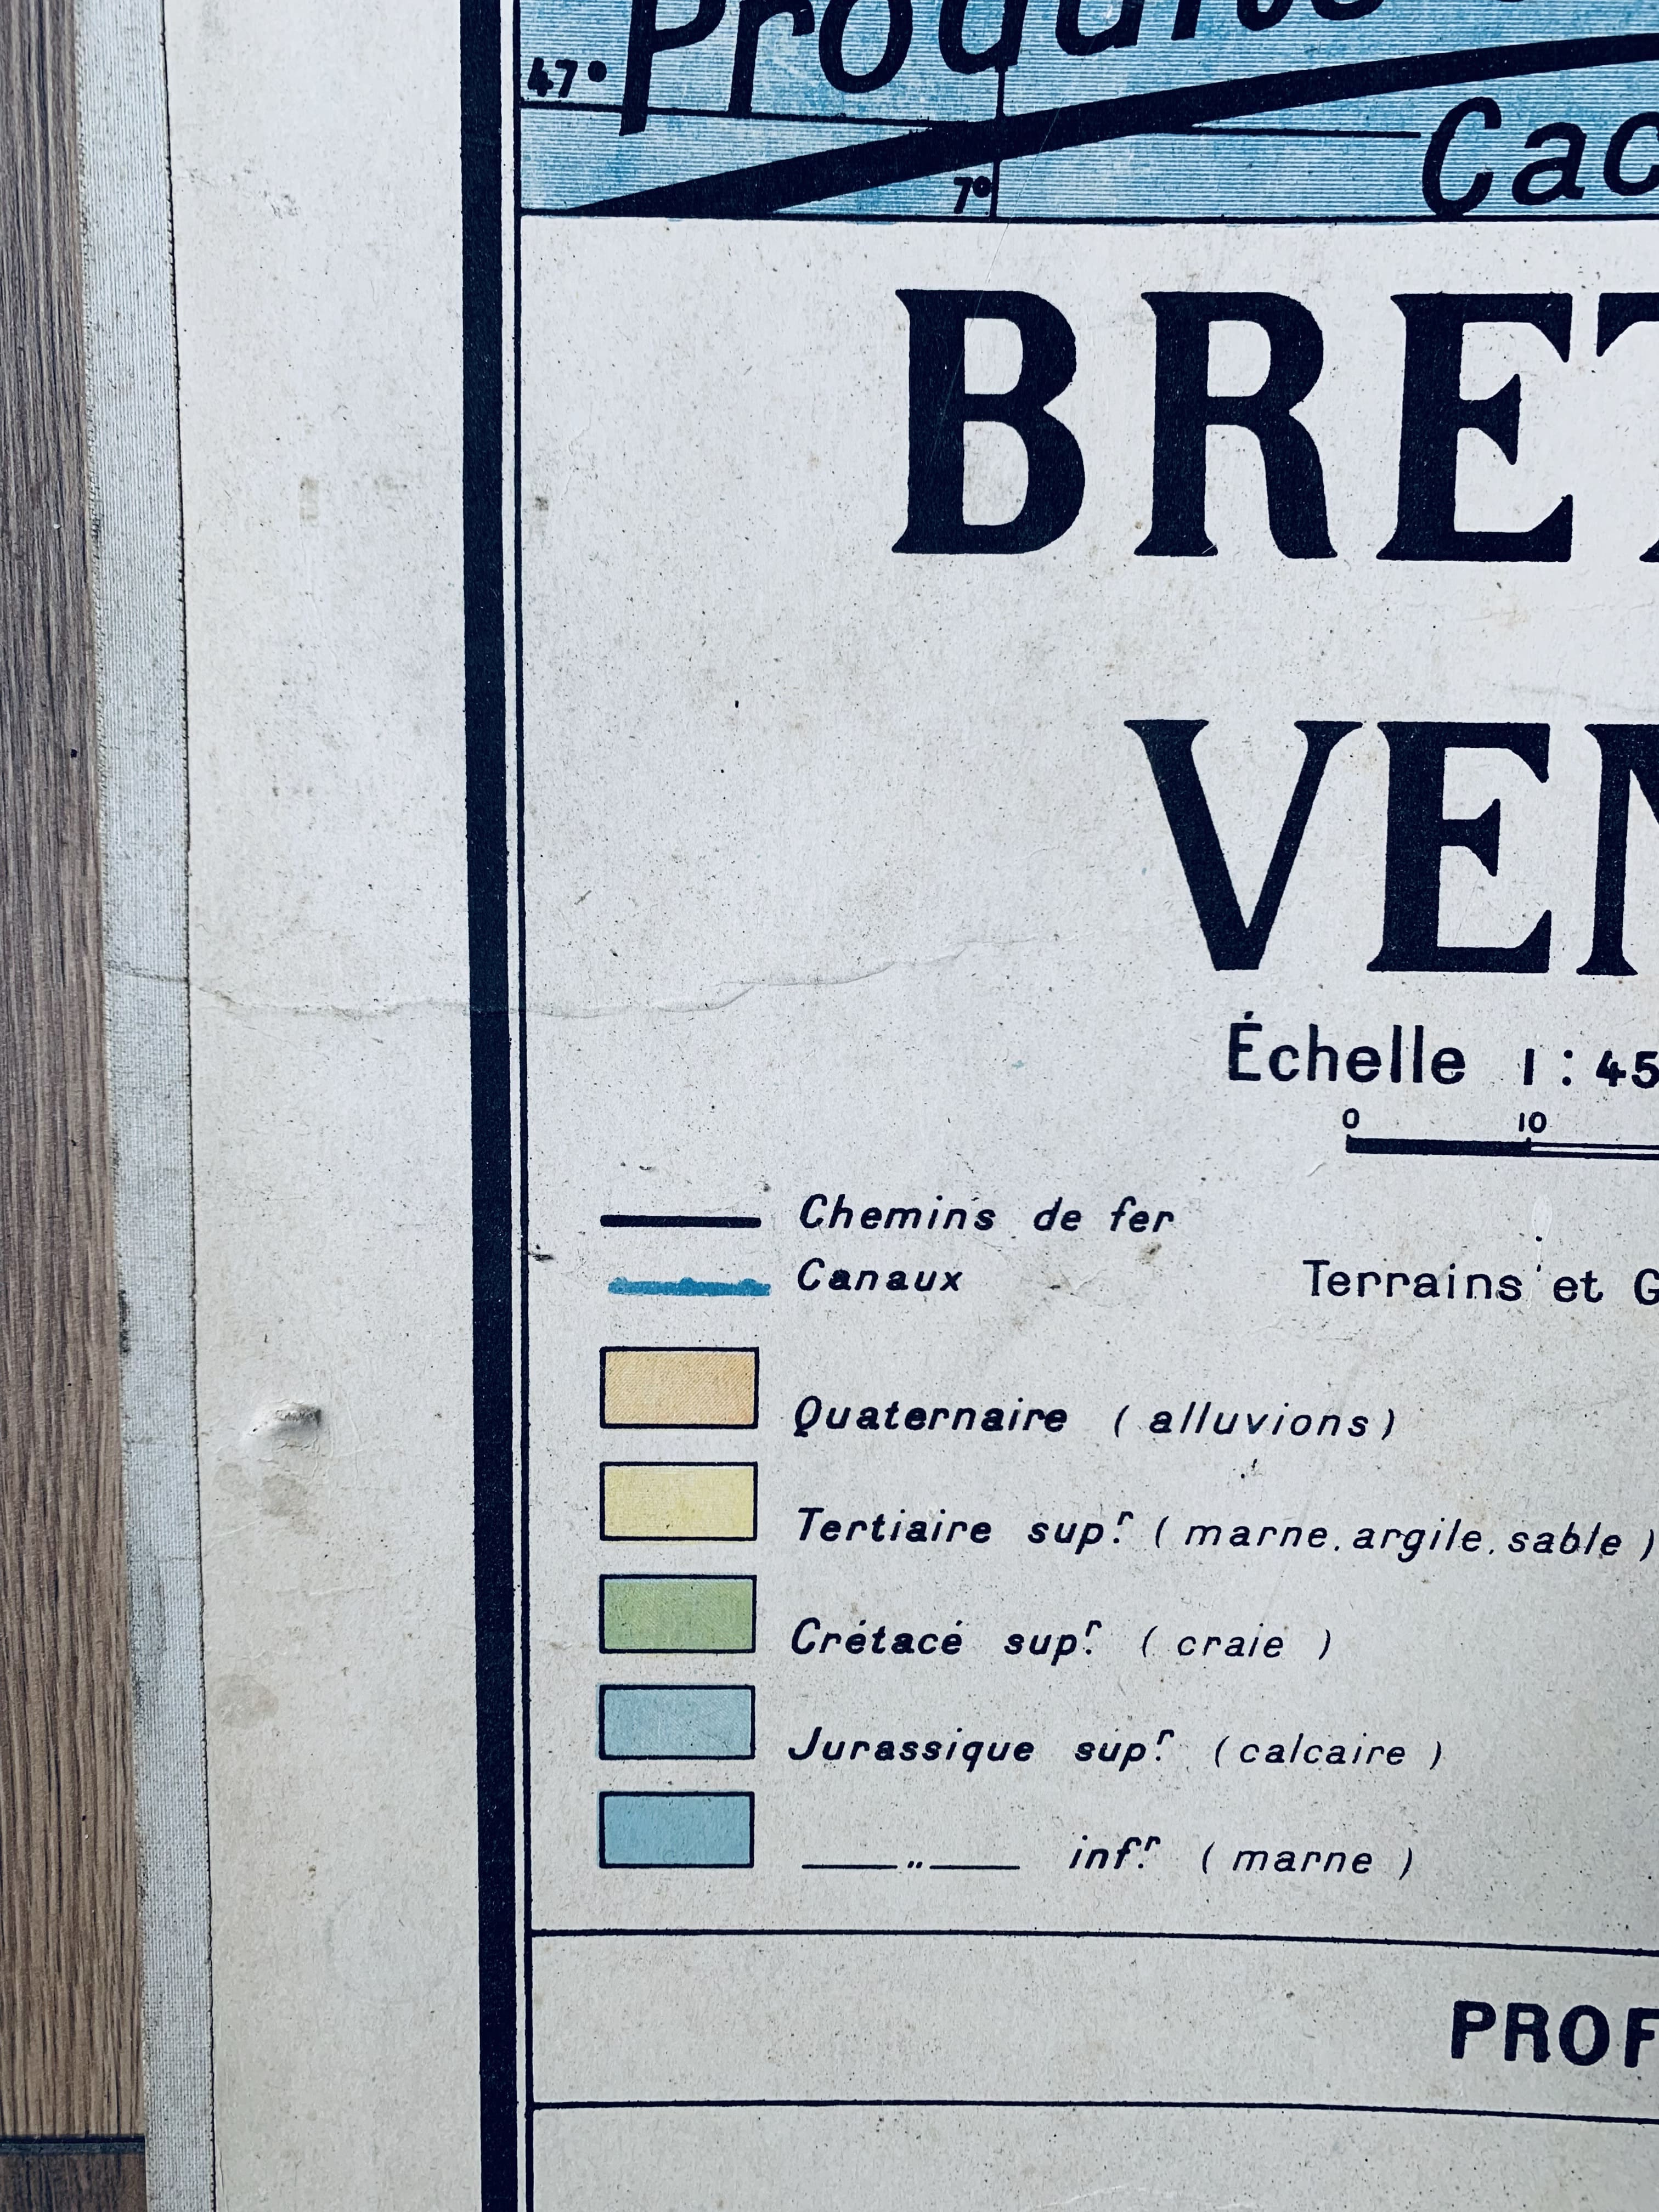 47°
Produits
Cac
7°
BRET
VEN
Échelle 1:45
0 10
Chemins de fer
Canaux
Terrains et G
Quaternaire (alluvions)
Tertiaire sup.r (marne, argile, sable)
Crétacé sup.r (craie)
Jurassique sup.r (calcaire)
—„— inf.r (marne)
PROF